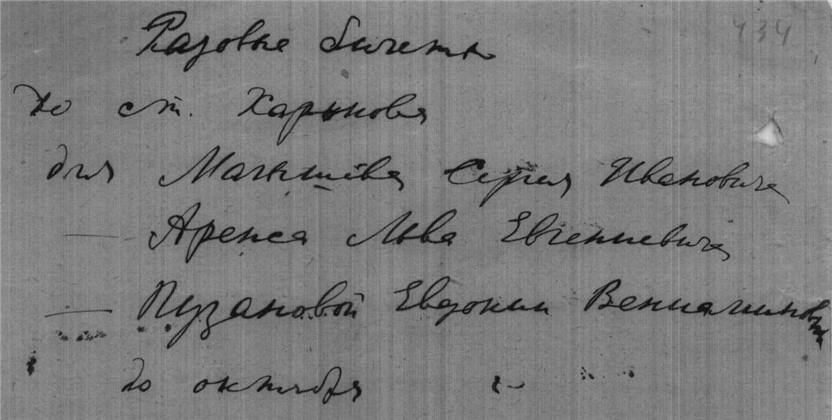 434
Разовые билеты
до ст. Харькова
для Малышева Сергея Ивановича
— Аренса Льва Евгениевича
— Пузановой Евдокии Вениаминовны
до октября